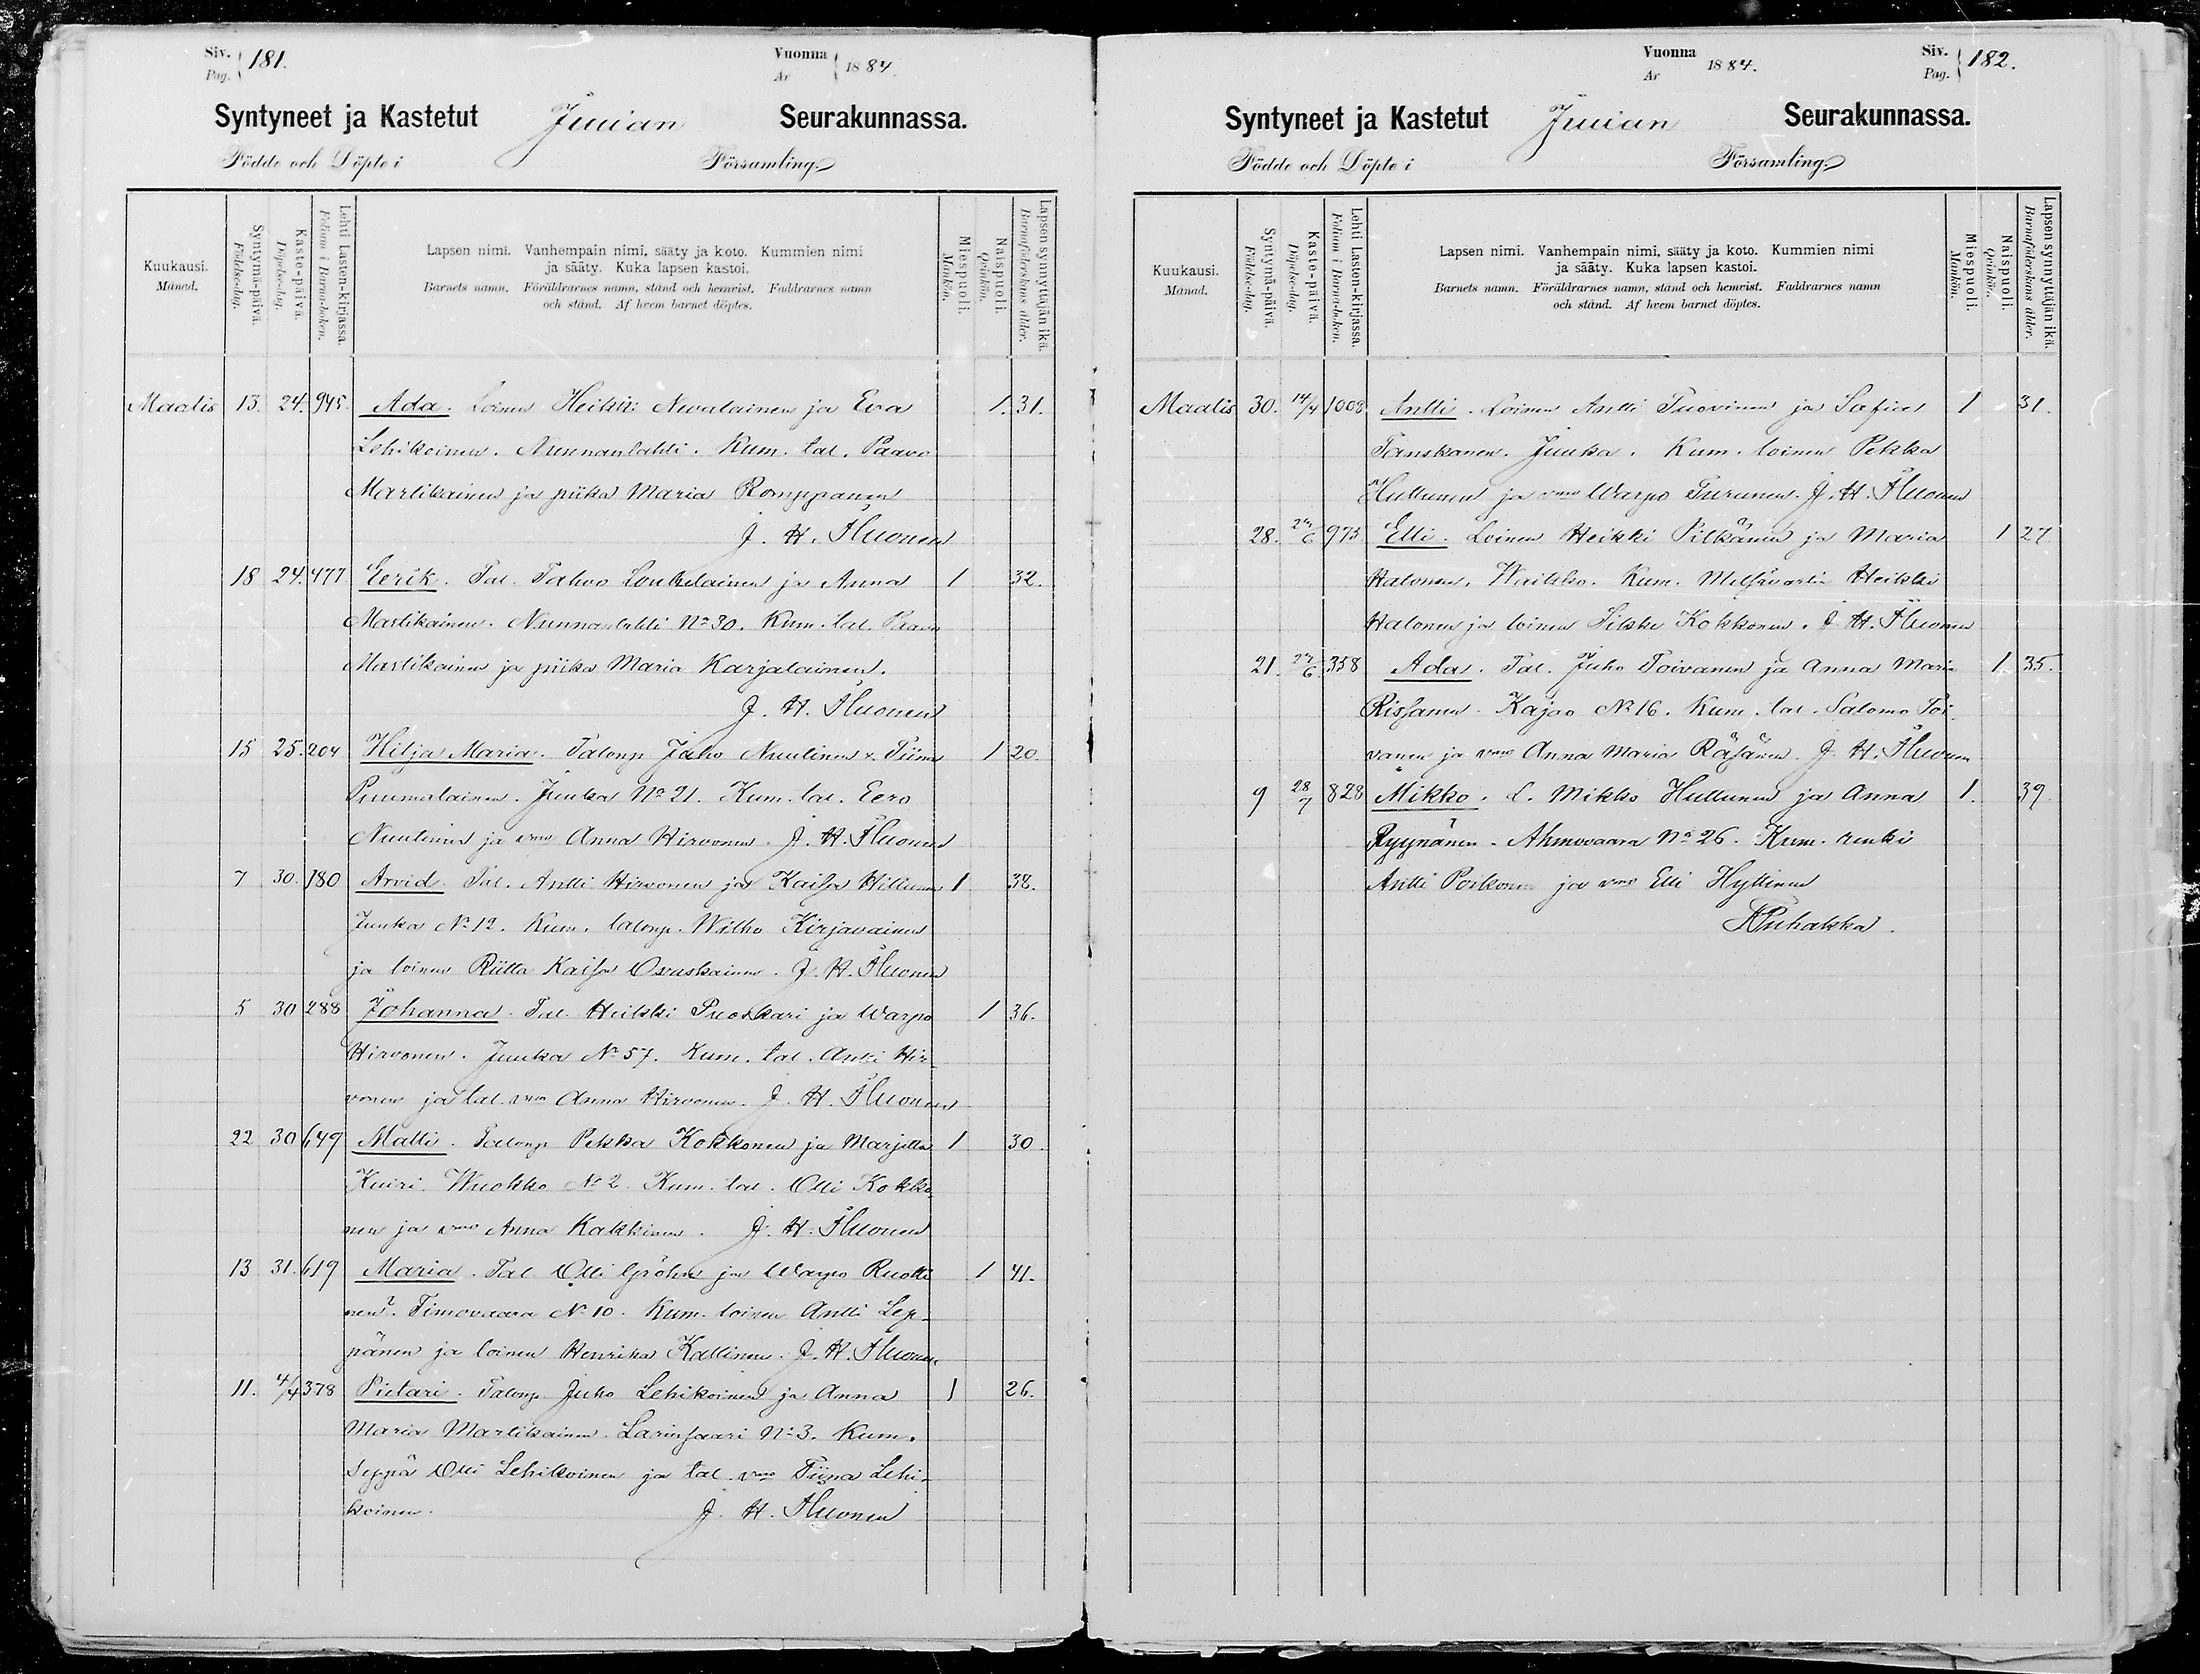 Siv. Pag. 181. Vuonna År 1884.
Syntyneet ja Kastetut Juuan Seurakunnassa.
Födde och Döpte i Församling.
Kuukausi. Månad.
Syntymä-päivä. Födelse-dag.
Kaste-päivä. Döpelse-dag.
Lehti Lasten-kirjassa. Folium i Barna-boken.
Lapsen nimi. Vanhempain nimi, sääty ja koto. Kummien nimi
ja sääty. Kuka lapsen kastoi.
Barnets namn. Föräldrarnes namn, stånd och hemvist. Faddrarnes namn
och stånd. Af hvem barnet döptes.
Miespuoli. Mankön.
Naispuoli. Qvinkön.
Lapsen synnyttäjän ikä. Barnaföderskans ålder.
Maalis 13. 24. 945. Ada. Loinen Heikki Nevalainen ja Eva 1. 31.
Lehikoinen. Nunnanlahti. Kum. tal. Paavo
Martikainen ja piika Maria Romppanen
J. H.
18 24. 477 Eerik. Tal. Tahvo Loukelainen ja Anna 1 32.
Martikainen. Nunnanlahti No 30. Kum. tal. Paavo
Martikainen ja piika Maria Karjalainen.
J. H.
15 25. 204 Hilja Maria. Talonp Juho Nuutinen & Tiina 1 20.
Puumalainen. Juuka No 21. Kum. tal. Eero
Nuutinen ja vmo Anna Hirvonen. J. H.
7 30. 180 Arvid. Tal. Antti Hirvonen ja Kaisa Hiltunen 1 38.
Juuka No 12. Kum. talonp. Wilho Kirjavainen
ja loinen Riitta Kaisa J. H.
5 30 288 Johanna. Tal. Heikki Puoskari ja Warpo 1 36.
Hirvonen. Juuka No 57. Kum. tal. Antti Hir-
vonen ja tal. vmo Anna Hirvonen. J. H.
22 30 649 Matti. Talonp Pekka Kokkonen ja Marjetta 1 30.
Kuiri. Wuokko No 2. Kum. tal. Olli Kokko-
nen ja vmo Anna Kakkinen. J. H.
13 31. 619 Maria. Tal. Olli Gröhn ja Warpo Ruotti 1 41.
nen. Timovaara No 10. Kum. loinen Antti Lep-
pänen ja loinen Henrika Kallinen. J. H.
11. 4/4 378 Pietari. Talonp Juho Lehikoinen ja Anna 1 26.
Maria Martikainen. Larinsaari No 3. Kum.
Seppä Olli Lehikoinen ja tal. vmo Tiina Lehi-
koinen. J. H.
Vuonna År 1884. Siv. Pag. 182.
Syntyneet ja Kastetut Juuan Seurakunnassa.
Födde och Döpte i Församling.
Kuukausi. Månad.
Syntymä-päivä. Födelse-dag.
Kaste-päivä. Döpelse-dag.
Lehti Lasten-kirjassa. Folium i Barna-boken.
Lapsen nimi. Vanhempain nimi, sääty ja koto. Kummien nimi
ja sääty. Kuka lapsen kastoi.
Barnets namn. Föräldrarnes namn, stånd och hemvist. Faddrarnes namn
och stånd. Af hvem barnet döptes.
Miespuoli. Mankön.
Naispuoli. Qvinkön.
Lapsen synnyttäjän ikä. Barnaföderskans ålder.
Maalis 30. 14/4 1008 Antti. Loinen Antti Tuovinen ja Sofia 1 31.
Tanskanen. Juuka. Kum. loinen Pekka
Huttunen ja vmo Warpo Turunen. J. H.
28. 24/6 975 Elli. Loinen Heikki Pitkänen ja Maria 1 27
Halonen. Kum. Heikki
Halonen ja loinen Kokkonen. J. H.
21. 24/6 358 Ada. Tal. Juho Toivanen ja Anna Maria 1 35.
Rissanen. Kajoo No 16. Kum. tal. Salomo Toi-
vanen ja vmo Anna Maria Räsänen. J. H.
9 28/7 828 Mikko. l. Mikko Hultunen ja Anna 1. 39.
Ryynänen. Ahmovaara No 26. Kum. renki
Antti ja vmo Elli Hyttinen
Puhakka.